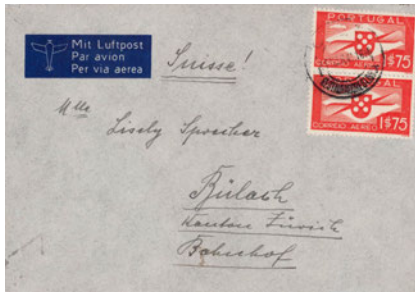 Mit Luftpost
Par avion
Per via aerea
Suisse!
PORTUGAL
CORREIO AEREO 1$75
CORREIO AEREO 1$75
Mlle
Lisely
Bülach
Kanton Zürich
Bahnhof